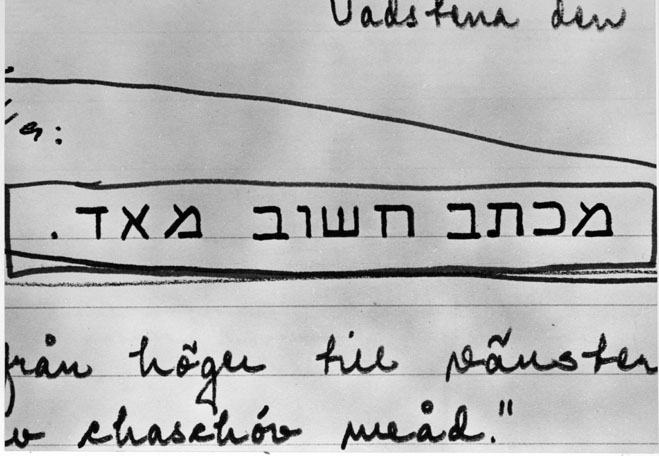 Vadstena den
מכתב חשוב מאד.
från höger till vänster
v chaschóv meåd."